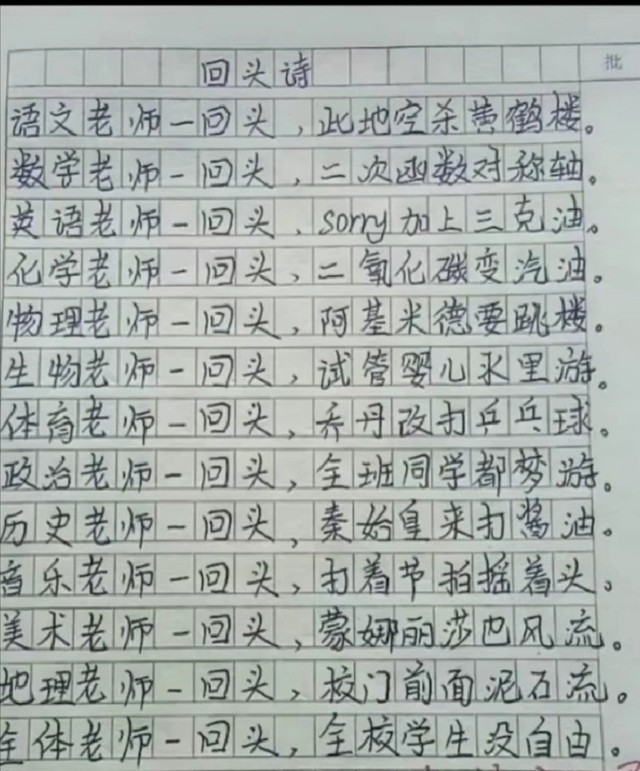 批
回头诗
语文老师一回头，此地空杀黄鹤楼。
数学老师一回头，二次函数对称轴。
英语老师一回头、sorry加上三克油。
化学老师一回头，二氧化碳变汽油。
物理老师一回头，阿基米德要跳楼。
生物老师一回头，试管婴儿水里游。
体育老师一回头，乔丹改打乒乓球。
政治老师一回头，全班同学都梦游。
历史老师一回头，秦始皇来打酱油。
音乐老师一回头，打着节拍摇着头。
美术老师一回头，蒙娜丽莎也风流。
地理老师一回头，校门前面泥石流。
全体老师一回头，全校学生没自由。